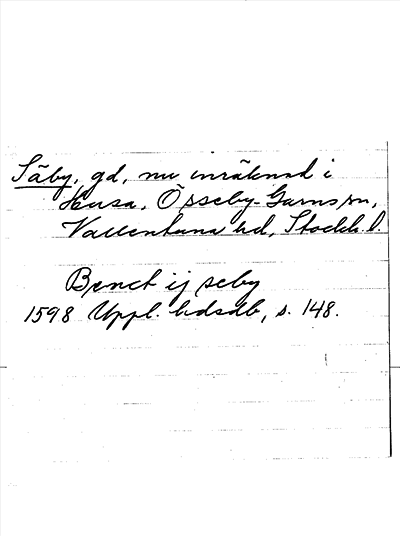 Säby, gd, nu inräknad i
Husa, Össeby-Garns sn,
Vallentuna hd, Stockh. l.
Benct ij seby
1598 Uppl. hdsdb, s. 148.